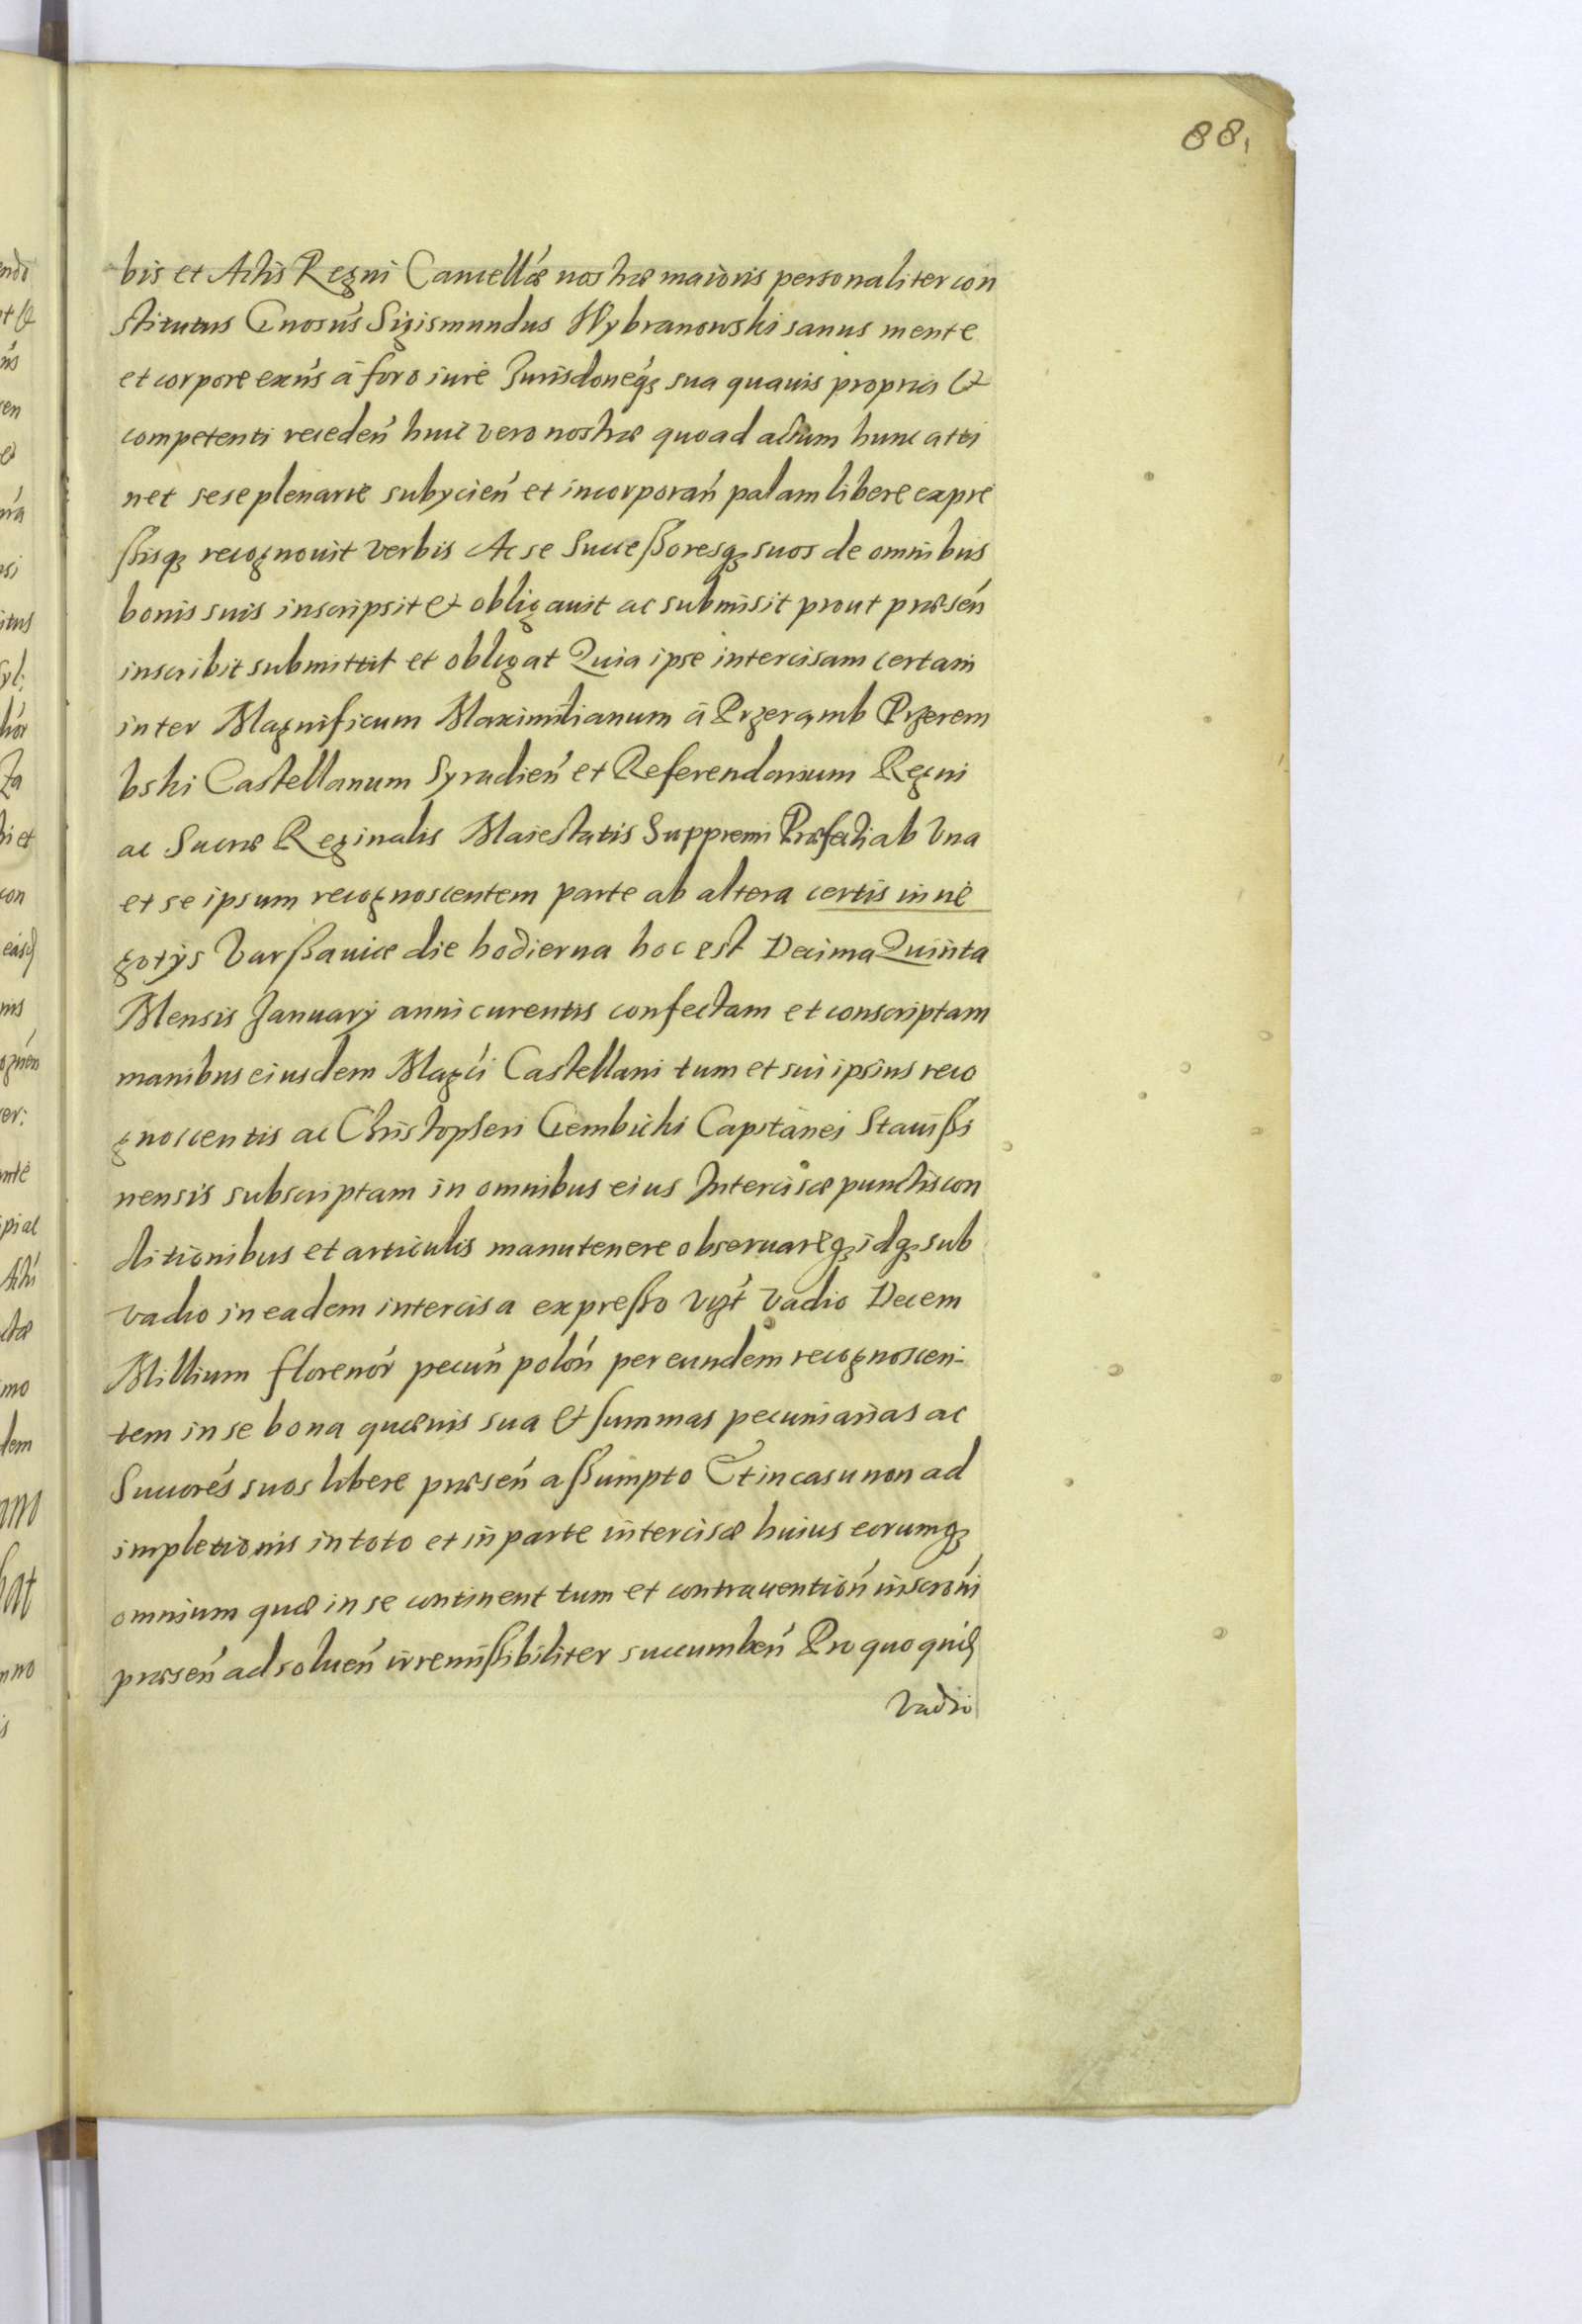 88.
bis et Actis Regni Cancellæ nostræ maioris personaliter con
stitutus Gnosus Sigismundus Wybranowski sanus mente
et corpore exns á foro iure Jurisdoneq3 sua quauis propria et
competenti receden huic vero nostræ quoad actum hunc atti
net sese plenarie subycien et incorporan palam libere expre
ßisq3 recognouit verbis Ac se Succeßoresq3 suos de omnibus
bonis suis inscripsit et obligauit ac submisit prout præsen
inscribit submittit et obligat Quia ipse intercisam certam
inter Magnificum Maximilianum á Przeramb Przerem
bski Castellanum Syradien et Referendarium Regni
ac Sacræ Reginalis Maiestatis Suppremi Præfecti ab Vna
et se ipsum recognoscentem parte ab altera certis in ne
gotys Varßauiæ die hodierna hoc est Decima Quinta
Mensis January anni curentis confectam et conscriptam
manibus eiusdem Magci Castellani tum et sui ipsius reco
gnoscentis ac Christopheri Gembicki Capitanei Stauißi
nensis subscriptam in omnibus eius Intercisæ punctis con
ditionibus et articulis manutenere obseruareq3 idq3 sub
vadio in eadem intercisa expreßo vzt Vadio Decem
Millium florenor pecun polon per eundem recognoscen-
tem in se bona quæuis sua et summas pecuniarias ac
Succores suos libere præsen aßumpto Et in casu non ad
impletionis in toto et in parte intercisæ huius eorumq3
omnium quæ in se continent tum et contrauention inscroni
præsen ad soluen irremißibiliter succumben Pro quo quid
Vadio